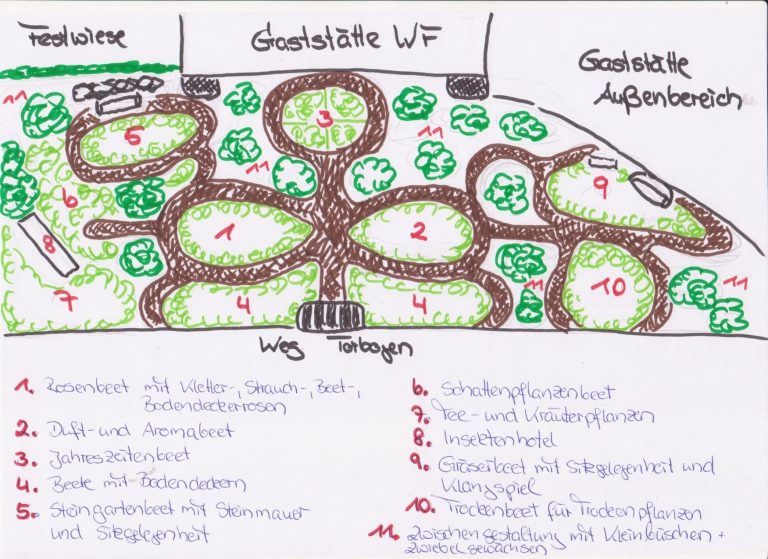 Festwiese
Gaststätte WF
Gaststätte
Außenbereich
11
11
11
3
5
6
9
8
1
2
7
4
4
10
11
11
Weg Torbogen
1. Rosenbeet mit Kletter-, Strauch-, Beet-,
Bodendeckerrosen
2. Duft- und Aromabeet
3. Jahreszeitenbeet
4. Beete mit Bodendeckern
5. Steingartenbeet mit Steinmauer
und Sitzgelegenheit
6. Schattenpflanzenbeet
7. Tee- und Kräuterpflanzen
8. Insektenhotel
9. Gräserbeet mit Sitzgelegenheit und
Klangspiel
10. Trockenbeet für Trockenpflanzen
11. Zwischengestaltung mit Kleinbüschen +
Zwiebelgewächsen